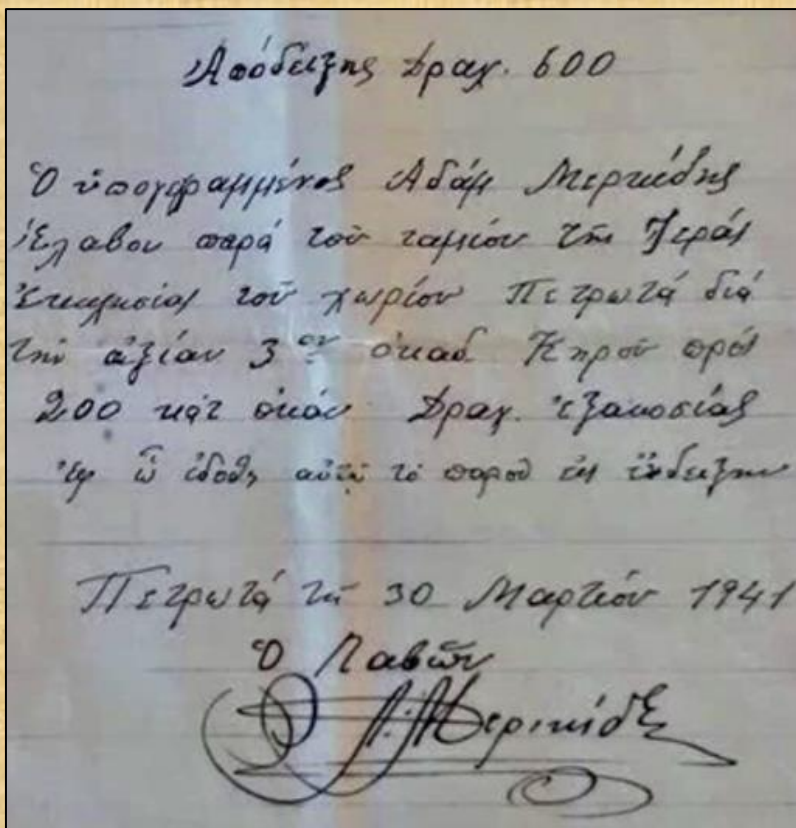 Απόδειξης Δραχ. 600
Ὁ ὑπογεγραμμένος Ἀδάμ
ἔλαβον παρά τοῦ ταμίου τῆς Ἱερᾶς
Ἐκκλησίας τοῦ χωρίου Πετρωτά διά
τήν ἀξίαν 3 ὀκαδ. Κηροῦ πρός
200 κατ ὀκάν Δραχ. ἑξακοσίας
ἐφ ᾧ ἐδόθη τό παρόν εἰς ἔνδειξην
Πετρωτά τῇ 30 Μαρτίου 1941
Ὁ Λαβῶν